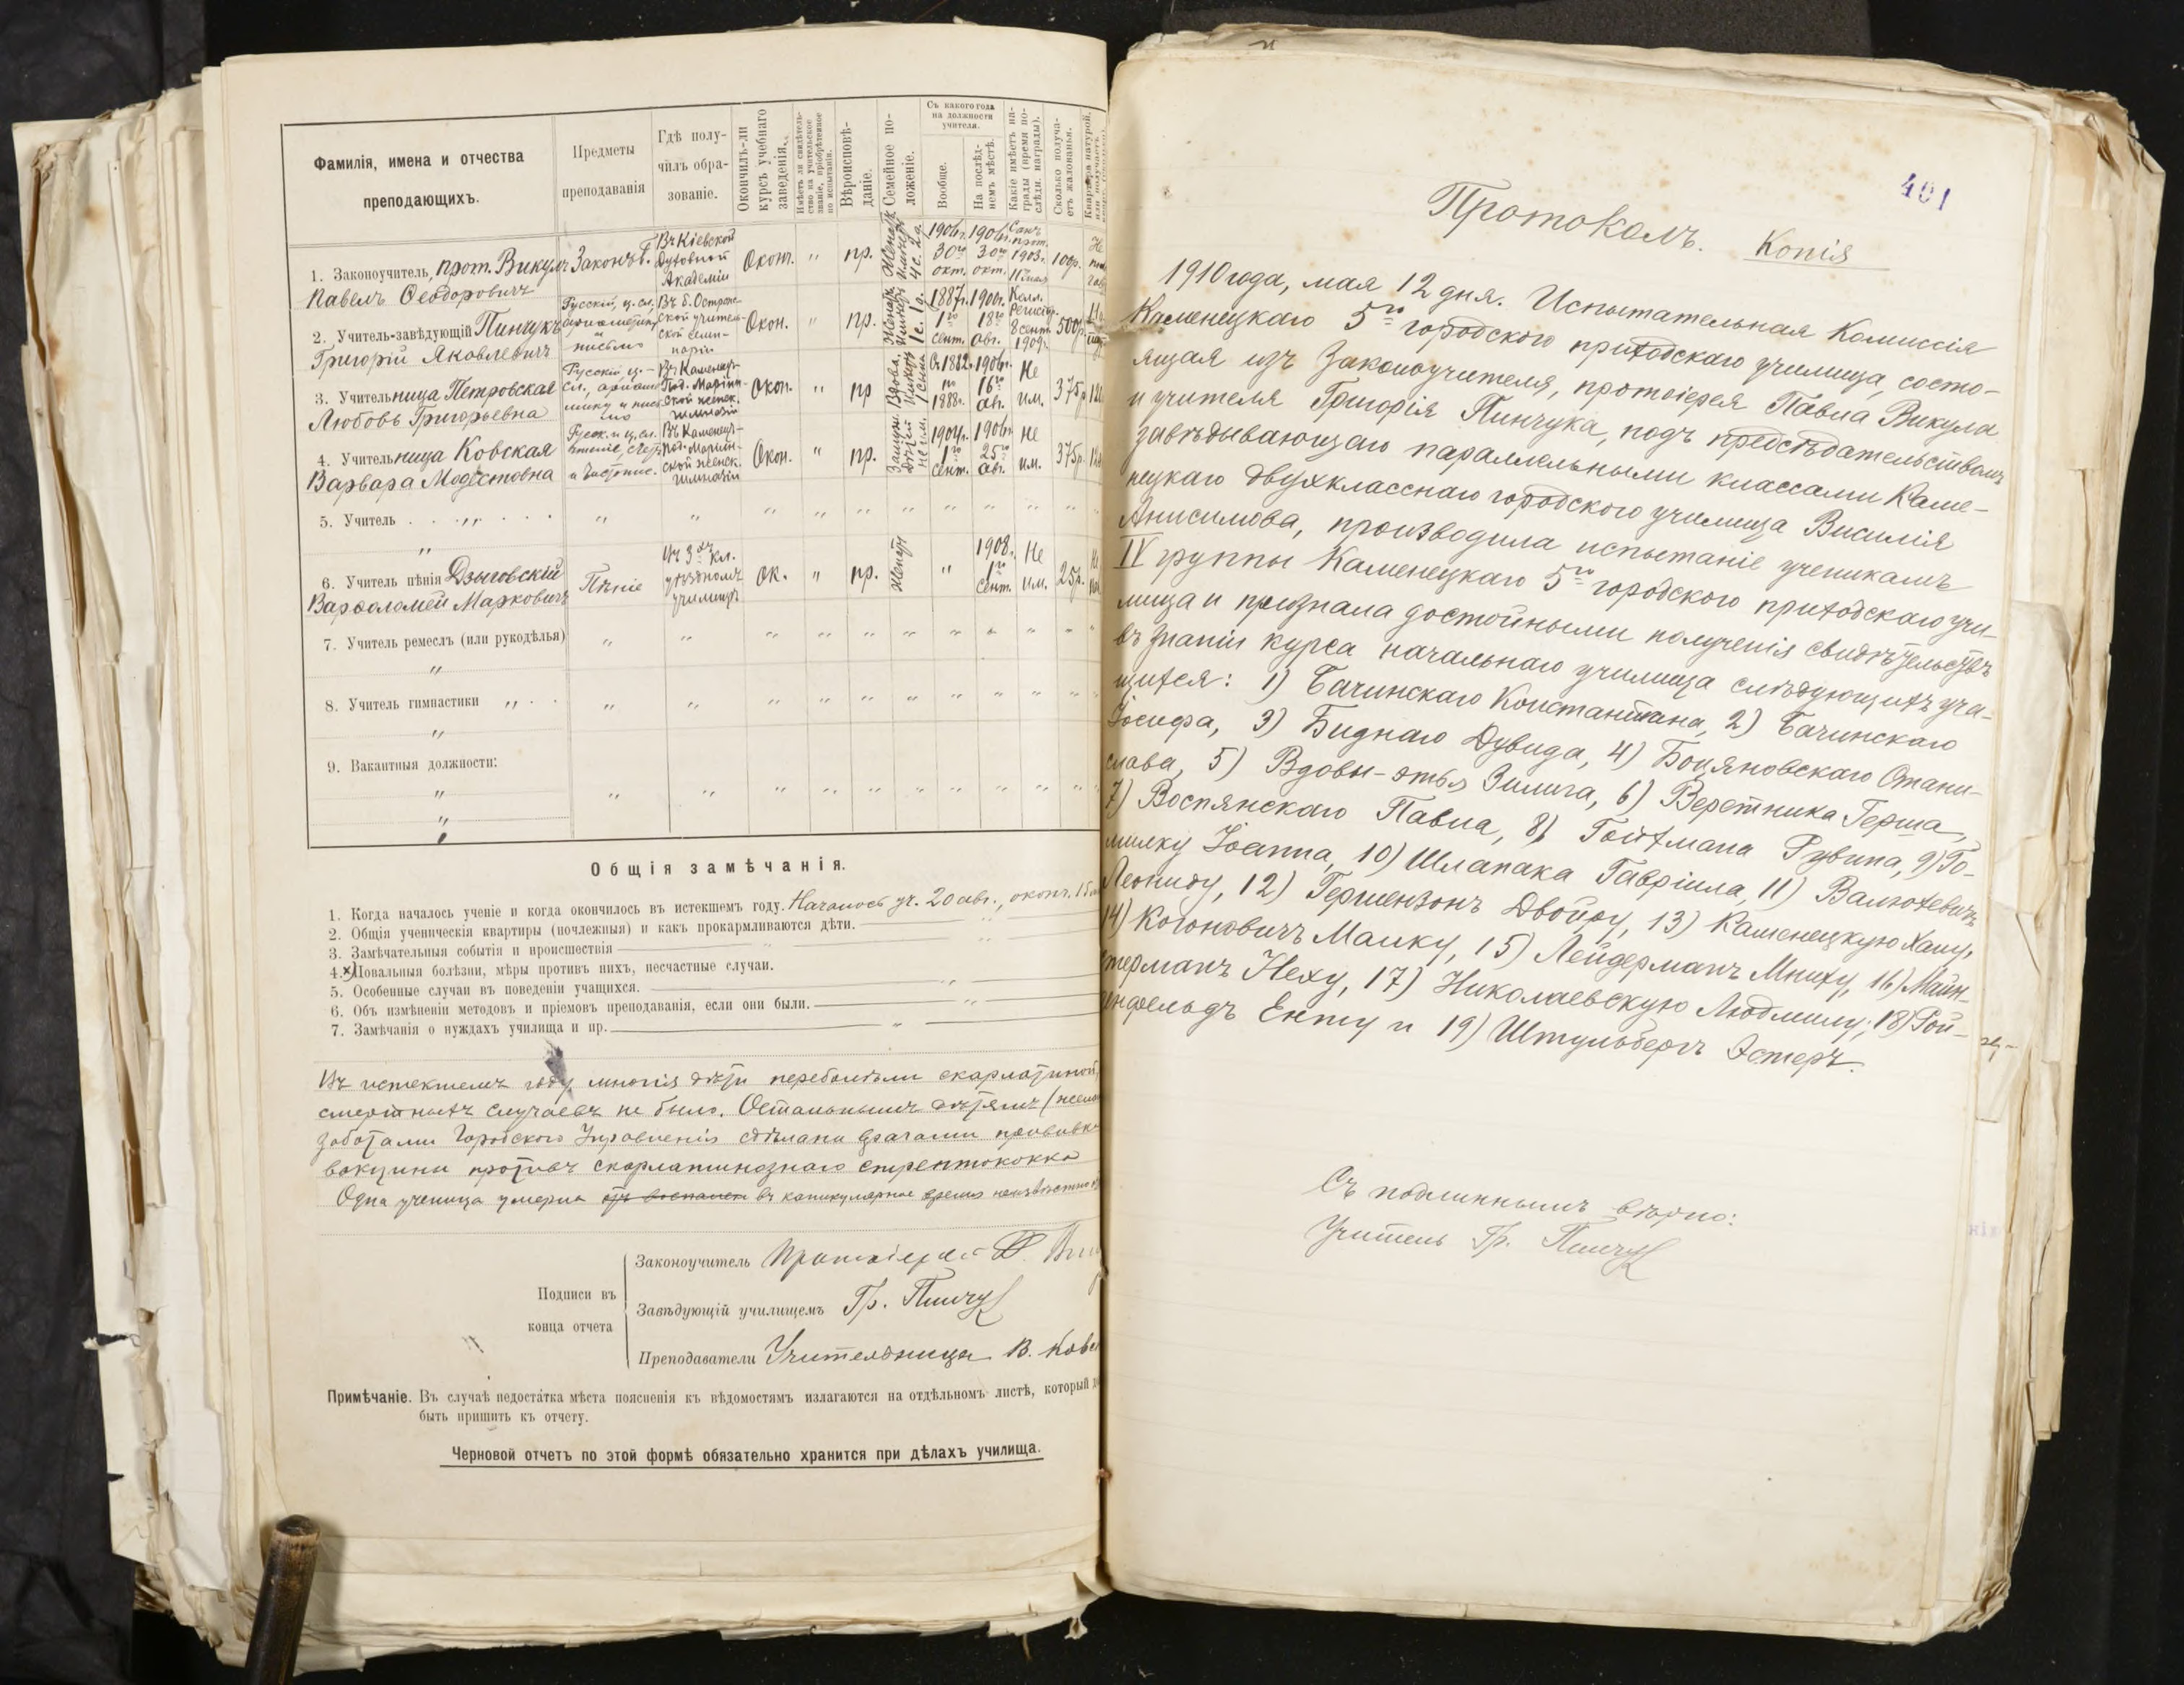 Фамилія, имена и отчества преподающихъ.
Предметы преподаванія
Гдѣ полу-
чилъ обра-
зованіе.
Окончилъ-ли курсъ учебнаго заведенія.
Имѣетъ ли свидѣтель-
ство на учительское
званіе, пріобрѣтенное
по испытанію.
Вѣроисповѣ-
даніе.
Семейное по-
ложеніе.
Съ какого года
на должности
учителя.
Вообще.
На послѣд-
немъ мѣстѣ.
Какіе имѣетъ на-
грады (время по-
слѣдн. награды).
Сколько получа-
етъ жалованья.
1. Законоучитель, прот. Викулъ
Павелъ Ѳеодоровичъ
Законъ Б.
Въ Кіевской
Духовной
Академіи
Оконч. " пр.
1906г. 30го окт.
1906г. 30го окт.
Санъ прот. 1903г.
100р.
2. Учитель-завѣдующій Пинчукъ
Григорій Яковлевичъ
Русскій, ц. сл.,
ариѳметику
и
письмо
Въ б. Острож-
ской учитель-
ской семи-
наріи
Окон. " пр.
1887г. 1го сент.
1900г. 18го авг.
Колл. Регистр. 8 сент. 1909г.
500р.
3. Учительница Петровская
Любовь Григорьевна
Русскій ц.-
сл., ариѳме-
тику и пись-
мо
Въ Каменец-
Под. Маріин-
ской женск.
гимназіи
Окон. " пр
Съ 1882 по 1888г.
1906г. 16го ав.
Не им.
375р
4. Учительница Ковская
Варвара Модестовна
Русск. и ц. сл.
чтеніе, счет.
и чистопис.
Въ Каменец-
Под. Маріин-
ской женск.
гимназіи
Окон. " пр.
Замужн. дѣтей не им.
1904г. 1го сент.
1906г. 25го авг.
не им.
375р.
5. Учитель . . ,, . . .
"
6. Учитель пѣнія Дзыговскій
Варѳоломей Марковичъ
Пѣніе
Въ 3хъ кл.
уѣздномъ
училищѣ
ок. " пр. Женатъ "
1908. 1го сент.
Не им.
25р.
7. Учитель ремеслъ (или рукодѣлья)
"
8. Учитель гимнастики ,, . .
"
9. Вакантныя должности:
"
"
Общія замѣчанія.
1. Когда началось ученіе и когда окончилось въ истекшемъ году. Началось уч. 20 авг., оконч. 15
2. Общія ученическія квартиры (ночлежныя) и какъ прокармливаются дѣти.
3. Замѣчательныя событія и происшествія
4.х) Повальныя болѣзни, мѣры противъ нихъ, несчастные случаи.
5. Особенные случаи въ поведеніи учащихся.
6. Объ измѣненіи методовъ и пріемовъ преподаванія, если они были.
7. Замѣчанія о нуждахъ училища и пр.
Въ истекшемъ году многія дѣти переболѣли скарлатиной,
смертныхъ случаевъ не было. Остальнымъ дѣтямъ
заботами Городского Управленія сдѣланы врачами прививки
вакцины противъ скарлатинознаго стрептококка
Одна ученица умерла отъ воспален въ каникулярное время неизвѣстно
Подписи въ
конца отчета
Законоучитель Протоіерей П. Вик
Завѣдующій училищемъ Гр. Пинчукъ
Преподаватели Учительница В. Ков
Примѣчаніе. Въ случаѣ недостатка мѣста поясненія къ вѣдомостямъ излагаются на отдѣльномъ листѣ, который д
быть пришитъ къ отчету.
Черновой отчетъ по этой формѣ обязательно хранится при дѣлахъ училища.
401
Протоколъ. Копія
1910 года, мая 12 дня. Испытательная Комиссія
Каменецкаго 5го городского приходскаго училища, состо-
ящая изъ Законоучителя, протоіерея Павла Викула
и учителя Григорія Пинчука, подъ предсѣдательствомъ
завѣдывающаго параллельными классами Каме-
нецкаго двухкласснаго городского училища Василія
Анисимова, производила испытаніе ученикамъ
IV группы Каменецкаго 5го городского приходскаго учи-
лища и признала достойными полученія свидѣтельствъ
въ знаніи курса начальнаго училища слѣдующихъ уча-
щихся: 1) Бачинскаго Константина, 2) Бачинскаго
Іосифа, 3) Биднаго Дувида, 4) Боцяновскаго Стани-
слава, 5) Вдовы-эть Зилига, 6) Веретника Герша,
7) Воспянскаго Павла, 8) Гойхмана Рувина, 9) Го-
милку Іоанна, 10) Шлапака Гавріила, 11) Валюхевичъ
Леониду, 12) Гершензонъ Двойру, 13) Каменецкую Хаю,
14) Когоновичъ Малку, 15) Лейдерманъ Мниху, 16) Майн-
терманъ Неху, 17) Николаевскую Людмилу, 18) Рой-
зенфельдъ Енту и 19) Штульбергъ Эстеръ.
Съ подлиннымъ вѣрно:
Учитель Гр. Пинчукъ